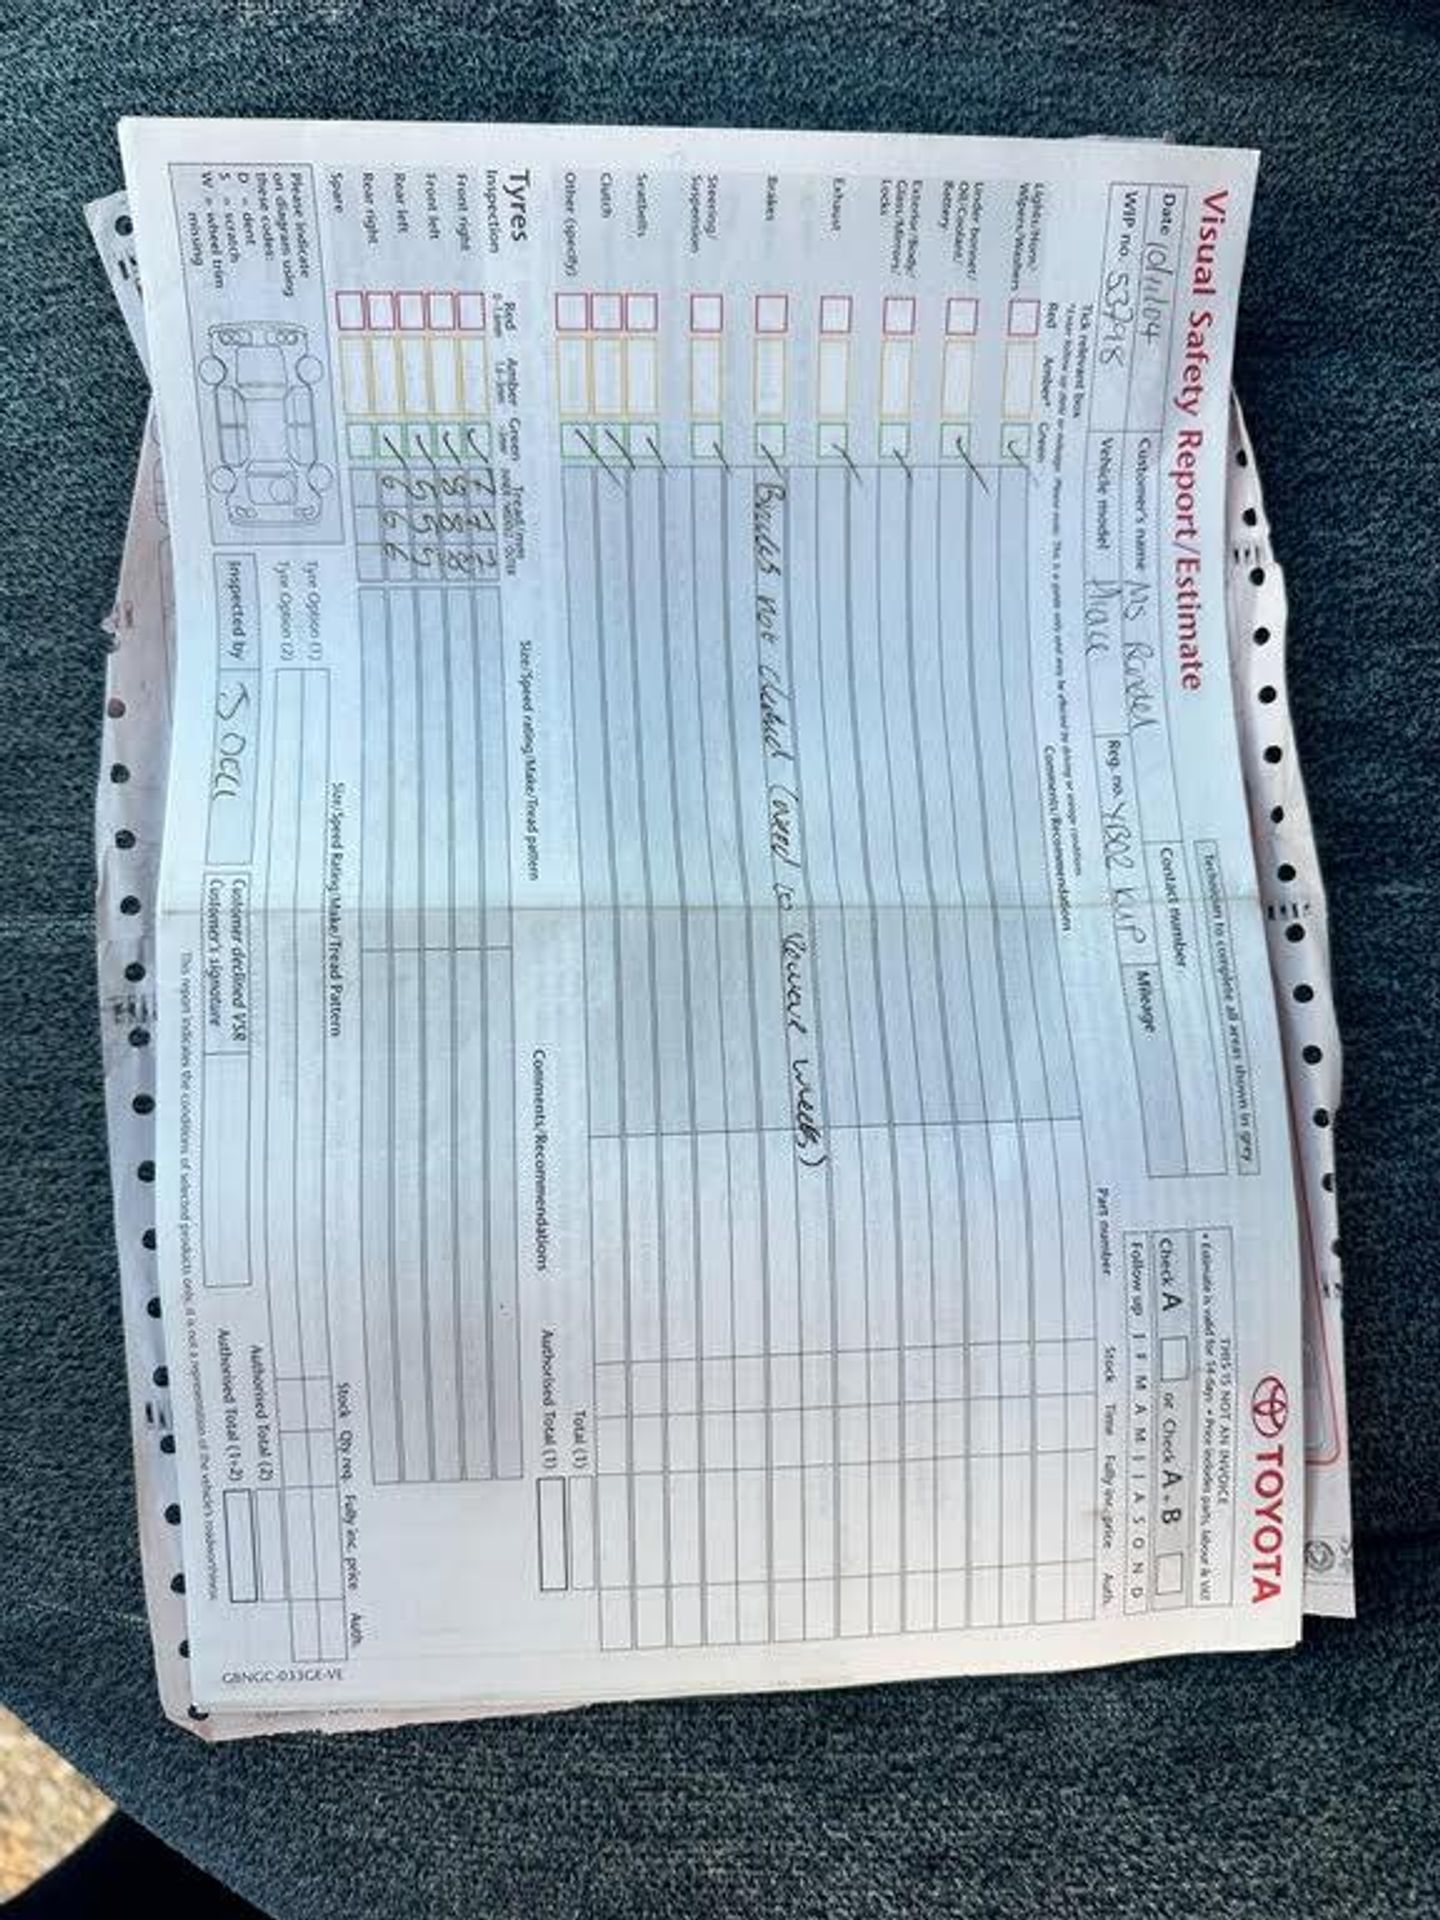 Visual Safety Report/Estimate
TOYOTA
Technician to complete all areas shown in grey
THIS IS NOT AN INVOICE
• Estimate is valid for 14 days • Price includes parts, labour & VAT
Date
Customer's name Ms
Contact number
Check A or Check A + B
WIP no. 53798
Vehicle model Hiace
Reg. no. YB02 KUP
Mileage
Follow up J F M A M J J A S O N D
Tick relevant box
Red Amber* Green
Comments/Recommendation
Part number Stock Time Fully inc. price Auth.
Lights/Horn/
Wipers/Washers
Under Bonnet/
Oil/Coolant/
Battery
Exterior/Body/
Glass/Mirrors/
Locks
Exhaust
Brakes
Brakes not checked (need to remove wheels)
Steering/
Suspension
Seatbelts
Clutch
Other (specify)
Total (1)
Authorised Total (1)
Tyres
Inspection
Red Amber Green
Size/Speed rating/Make/Tread pattern
Comments/Recommendations
Front right 7 7 7
Front left 8 8 8
Rear left 5 5 5
Rear right 6 6 6
Spare
Size/Speed Rating/Make/Tread Pattern
Stock Qty req. Fully inc. price Auth.
Please indicate
on diagram using
these codes:
D = dent
S = scratch
W = wheel trim
missing
Tyre Option (1)
Tyre Option (2)
Authorised Total (2)
Authorised Total (1+2)
Inspected by
Customer declined VSR
Customer's signature
This report indicates the conditions of selected products only, it is not a representation of the vehicle's roadworthiness
GBNGC-033GE-VE